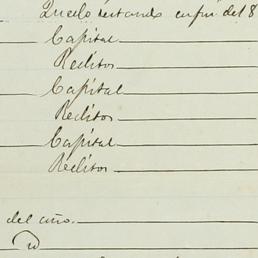 Quedó restando en fin del 8
Capital
Reditos
Capital
Reditos
Capital
Reditos
del año.